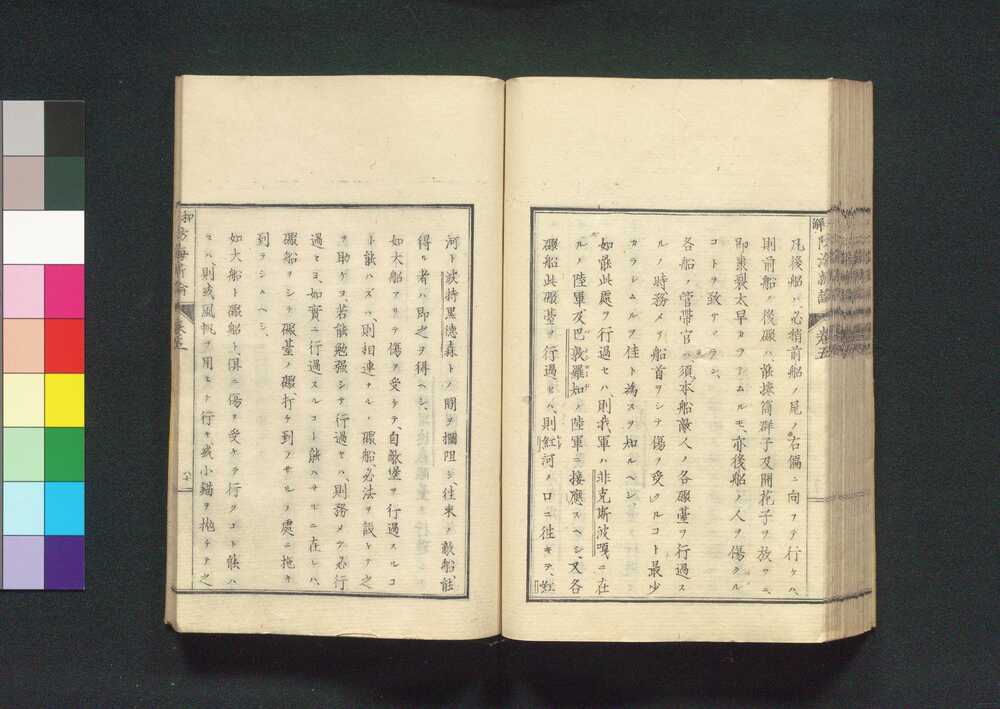 凡後船ハ必稍前船ノ尾ノ右偏ニ向フテ行ケハ、
則前船ノ後礮ハ、能墜筒群子及開花子ヲ放ツニ、
即裏裂太早カラシムルモ、亦後船ノ人ヲ傷クル
コトヲ致サヽラン、
各船ノ管帯官ハ須本船敵人ノ各礮臺ヲ行過ス
ルノ時務メテ船首ヲシテ傷ヲ受クルコト最少
カラシムルヲ佳ト為スヲ知ルヘシ、
如能此處ヲ行過セハ、則我軍ハ非克斯波嘎ニ在
ルノ陸軍及巴敦羅知ノ陸軍ニ接應スヘシ、又各
礮船此礮臺ヲ行過セハ、則紅河ノ口ニ往キテ、紅
河ト波持黒德森トノ間ヲ攔阻シ、往來ノ敵船能
得ル者ハ即之ヲ得ヘシ、
如大船アリテ傷ヲ受ケテ、自敵堡ヲ行過スルコ
ト能ハズハ、則相連ナルノ礮船必法ヲ設ケテ之
ヲ助ケヨ、若能勉强シテ行過セハ、則務メテ必行
過セヨ、如實ニ行過スルコト能ハサルニ在レハ、
礮船ヲシテ礮臺ノ礮、打チ到ラサルノ處ニ拖キ
到ラシムヘシ、
如大船ト礮船ト、倶ニ傷ヲ受ケテ行クコト能ハ
セハ、則或風帆ヲ用ヒテ行キ、或小錨ヲ抛チテ之
防海新論
卷五